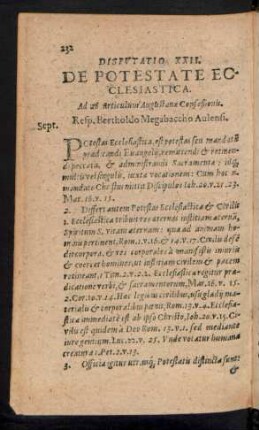 232
DISPVTATIO XXII.
DE POTESTATE EC-
CLESIASTICA.
Ad 28 Articulum Augustanæ Confessionis.
Resp. Bertholdo Megabaccho Aulensi.
Sept.
POtestas Ecclesiastica, est potestas seu mandatũ
prædicandi Evangelii, remittendi & retinen-
di peccata, & administrandi Sacramenta: idq́;
multis vel singulis, juxta vocationem: Cum hoc
mandato Christus mittit Discipulos Ioh. 20. v. 21. 23.
Mat. 18. v. 15.
2. Differt autem Potestas Ecclesiastica & Civilis
1. Ecclesiastica tribuit res æternas: justitiam æternã,
Spiritum S. vitam æternam: quæ ad animam ho-
minis pertinent, Rom. 1. v. 16. & 14. v. 17. Civilis defẽ-
dit corpora, & res corporales à manifestis injuriis
& coercet homines, ut justitiam civilem & pacem
retineant, 1 Tim. 2. v. 2. 2. Ecclesiastica regitur præ-
dicatione verbi, & sacramentorum, Mat. 18. v. 15.
2. Cor. 10. v. 14. Hæc legibus civilibus, usu gladij ma-
terialis & corporalibus pœnis, Rom. 13. v. 4. Ecclesia-
stica immediatè est ab ipso Christo, Ioh. 20. v. 15. Ci-
vilis est quidem à Deo Rom. 13. v. 1. sed mediante
jure gentium. Luc. 22. v. 25. Vnde vocatur humana
creatura 1. Pet. 2. v. 13.
3. Officia igitur utriusq́; Potestatis distincta sunt
&